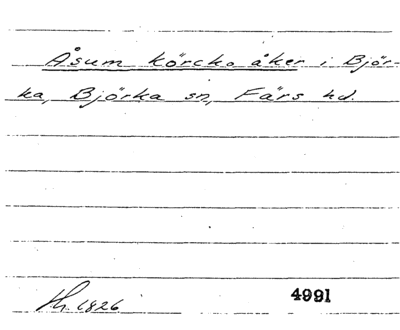 Åsum körcko åker i Björ-
ka, Björka sn, Färs hd.
1826 4991